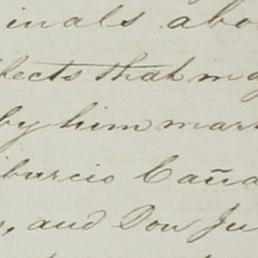 inals abo
ffects that may
by him mar
iburcio Caña
, and Don Ju